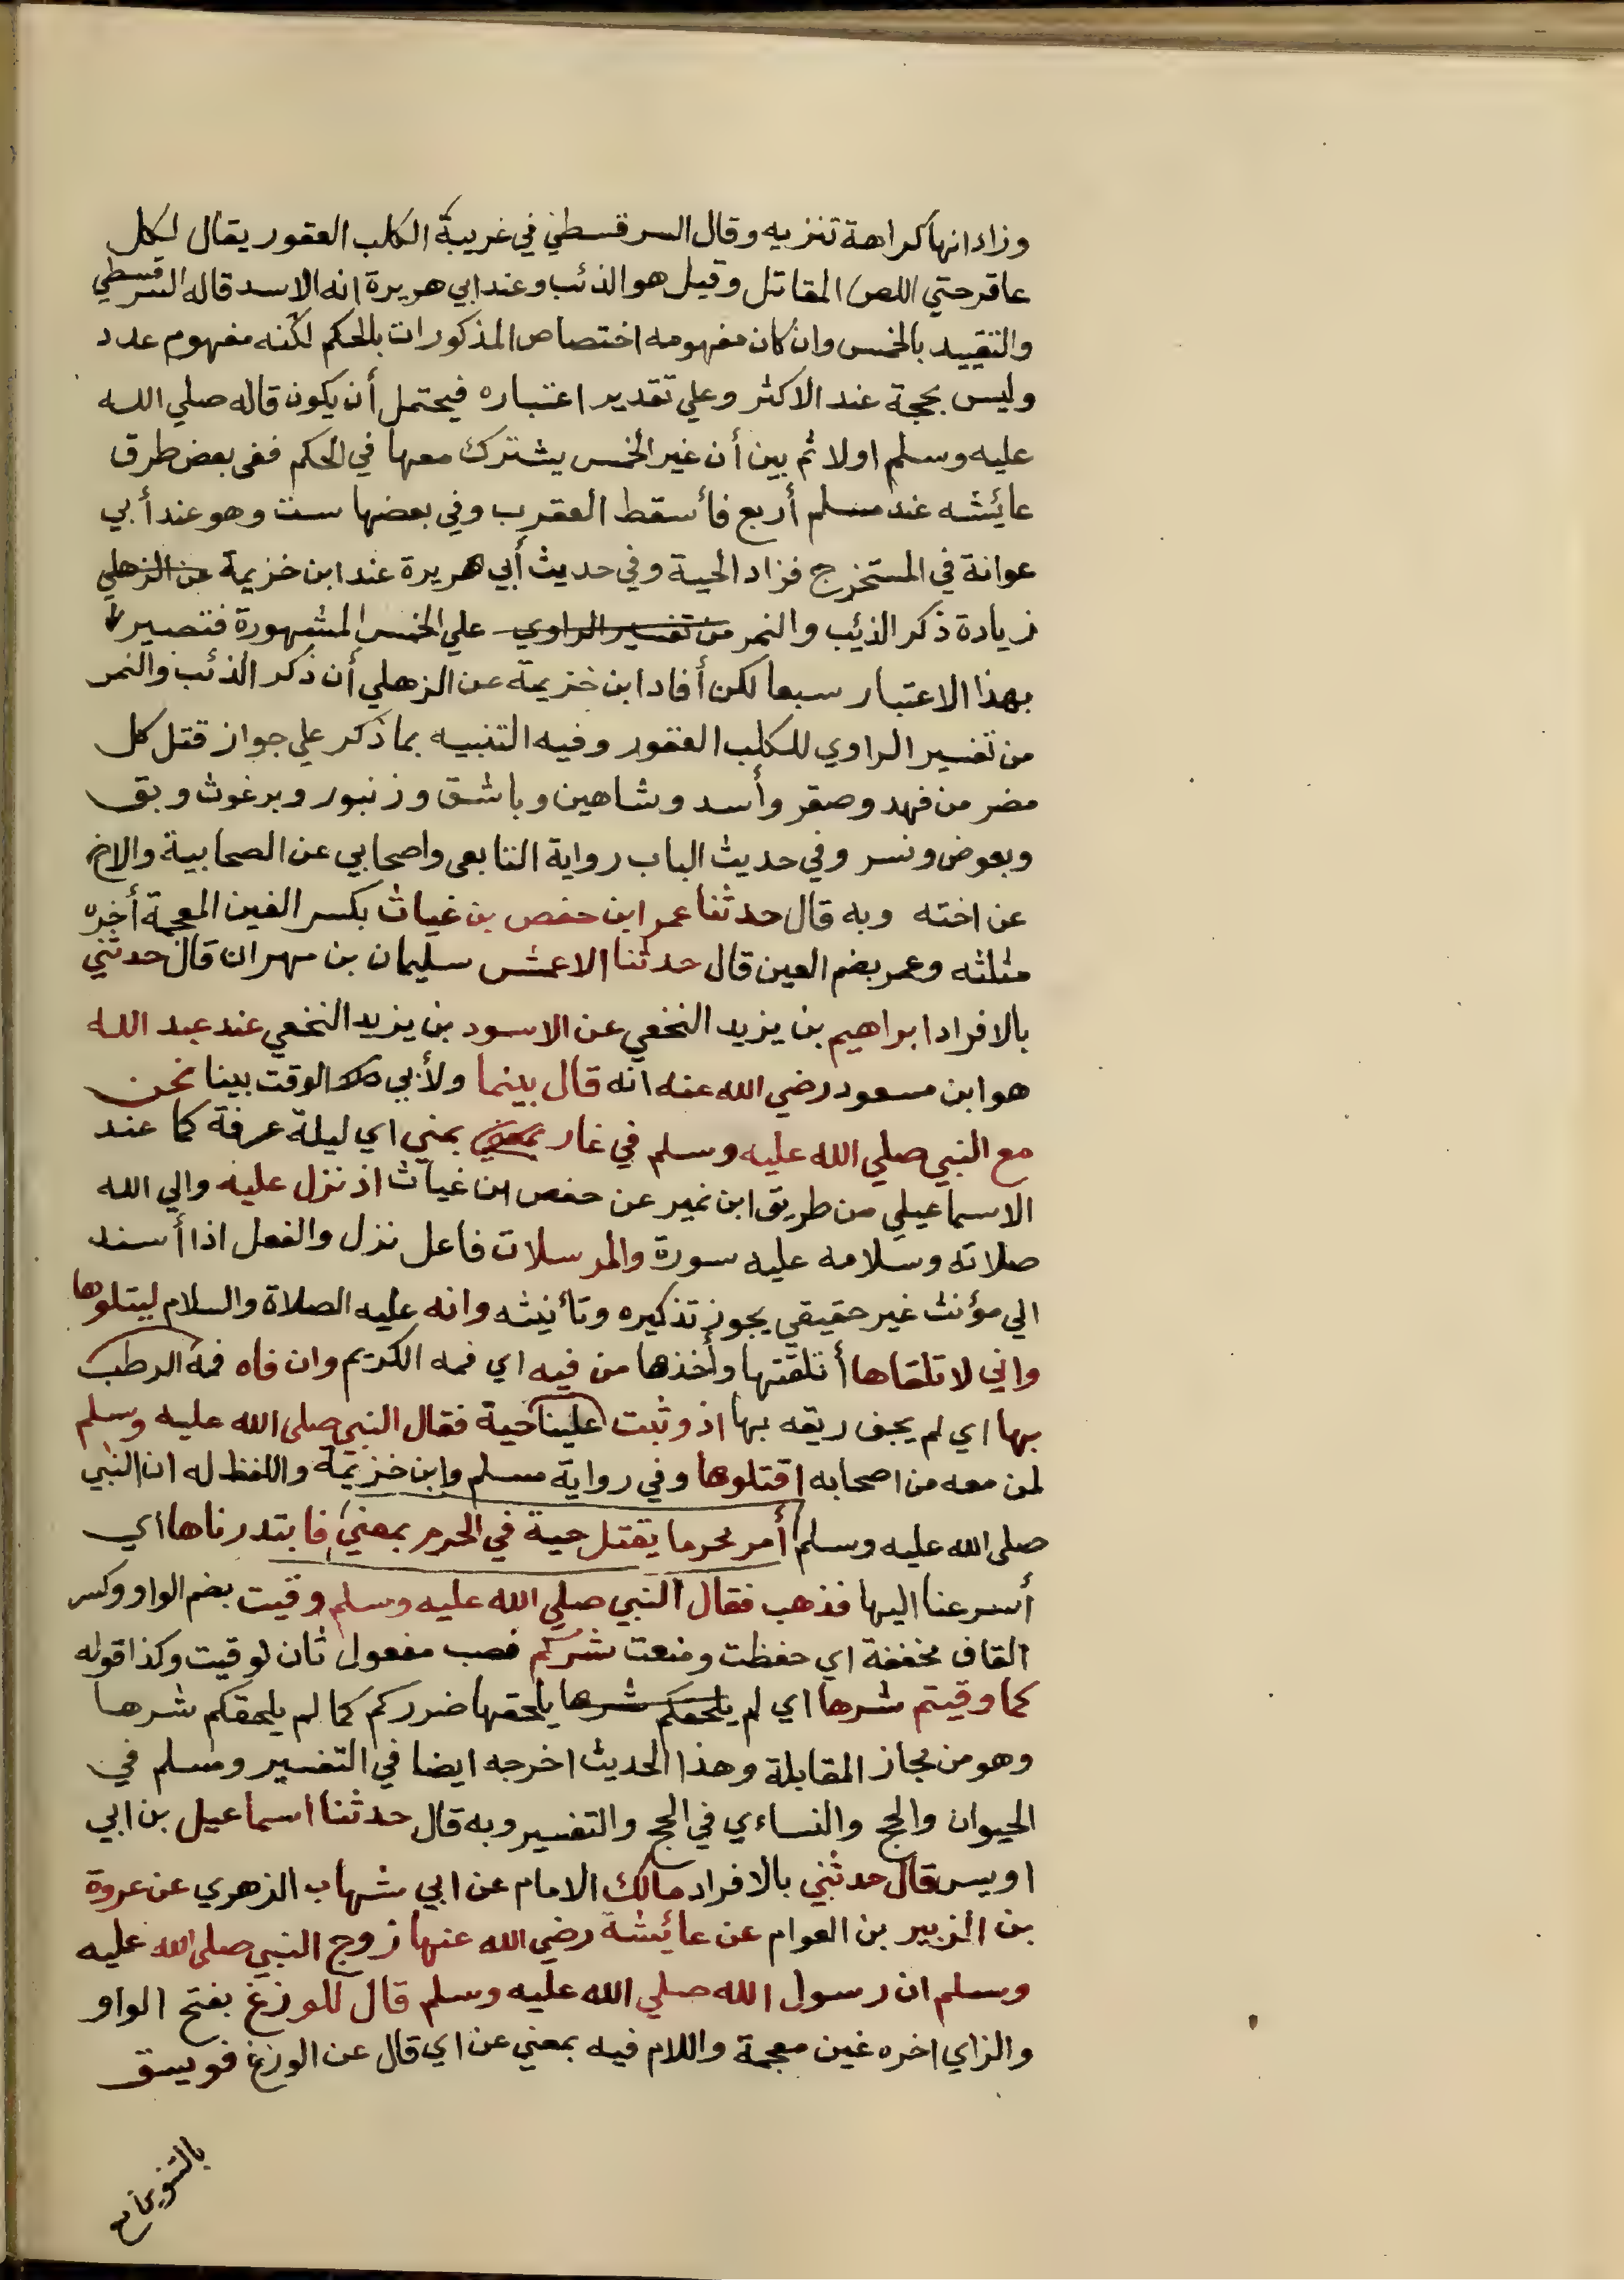 وزاد انها كراهة تنزيه وقال السرقسطي في غريبة الكلب العقور يقال لكل
عاقر حتي اللص المقاتل وقيل هو الذئب وعند ابي هريرة انه الاسد قاله السرقسطي
والتقييد بالخمس وان كان مفهومه اختصاص المذكورات بالحكم لكنه مفهوم عدد
وليس بحجة عند الاكثر وعلي تقدير اعتباره فيحتمل أن يكون قاله صلي الله
عليه وسلم اولا ثم بين أن غير الخمس يشترك معها في الحكم ففى بعض طرق
عائيشه عند مسلم أربع فأسقط العقرب وفي بعضها ست وهو عند أبي
عوانة في المستخرج فزاد الحية وفي حديث أبي هريرة عند ابن خزيمة عن الزهلي
زيادة ذكر الذئب والنمر من تفسير الراوي علي الخمس المشهورة فتصير
بهذا الاعتبار سبعا لكن أفاد ابن خزيمة عن الزهلي أن ذكر الذئب والنمر
من تفسير الراوي للكلب العقور وفيه التنبيه بما ذكر علي جواز قتل كل
مضر من فهد وصقر وأسد وشاهين وباشق وزنبور وبرغوث وبق
وبعوض ونسر وفي حديث الباب رواية التابعى واصحابي عن الصحابية والاخ
عن اخته وبه قال حدثنا عمر ابن حفص بن غياث بكسر الغين المعجمة أخره
مثلثه وعمر بضم العين قال حدثنا الاعمش سليمان بن مهران قال حدثني
بالافراد ابراهيم بن يزيد النخعي عن الاسود بن يزيد النخعي عند عبد الله
هو ابن مسعود رضي الله عنه انه قال بينما ولأبي الوقت بينا نحن
مع النبي صلي الله عليه وسلم في غار بمعني بمني اي ليلة عرفة كما عند
الاسماعيلي من طريق ابن نمير عن حفص ابن غياث اذ نزل عليه والي الله
صلاته وسلامه عليه سورة والمرسلات فاعل نزل والفعل اذا أسند
الي مؤنث غير حقيقي يجوز تذكيره وتأنيثه وانه عليه الصلاة والسلام ليتلوها
واني لا تلقاها أتلقنها وأخذها من فيه اي فمه الكريم وان فاه فمه الرطب
بها اي لم يجف ريقه بها اذ وثبت علينا حية فقال النبي صلى الله عليه وسلم
لمن معه من اصحابه اقتلوها وفي رواية مسلم وابن خزيمة واللفظ له ان النبي
صلى الله عليه وسلم أمر محرما يقتل حية في الحرم بمعني فابتدرناها اي
أسرعنا اليها فذهب فقال النبي صلي الله عليه وسلم وقيت بضم الواو وكسر
القاف مخففة اي حفظت ومنعت شركم نصب مفعول ثان لوقيت وكذا قوله
كما وقيتم شرها اي لم يلحقكم شرها يلحقها ضرركم كما لم يلحقكم شرها
وهو من مجاز المقابلة وهذا الحديث اخرجه ايضا في التفسير ومسلم في
الحيوان والحج والنساءي في الحج والتفسير وبه قال حدثنا اسماعيل بن ابي
اويس قال حدثني بالافراد مالك الامام عن ابي شهاب الزهري عن عروة
بن الزبير بن العوام عن عائيشة رضي الله عنها زوج النبي صلى الله عليه
وسلم ان رسول الله صلي الله عليه وسلم قال للوزغ بفتح الواو
والزاي اخره غين معجمة واللام فيه بمعني عن اي قال عن الوزغ فويسق
بالتنوين مع